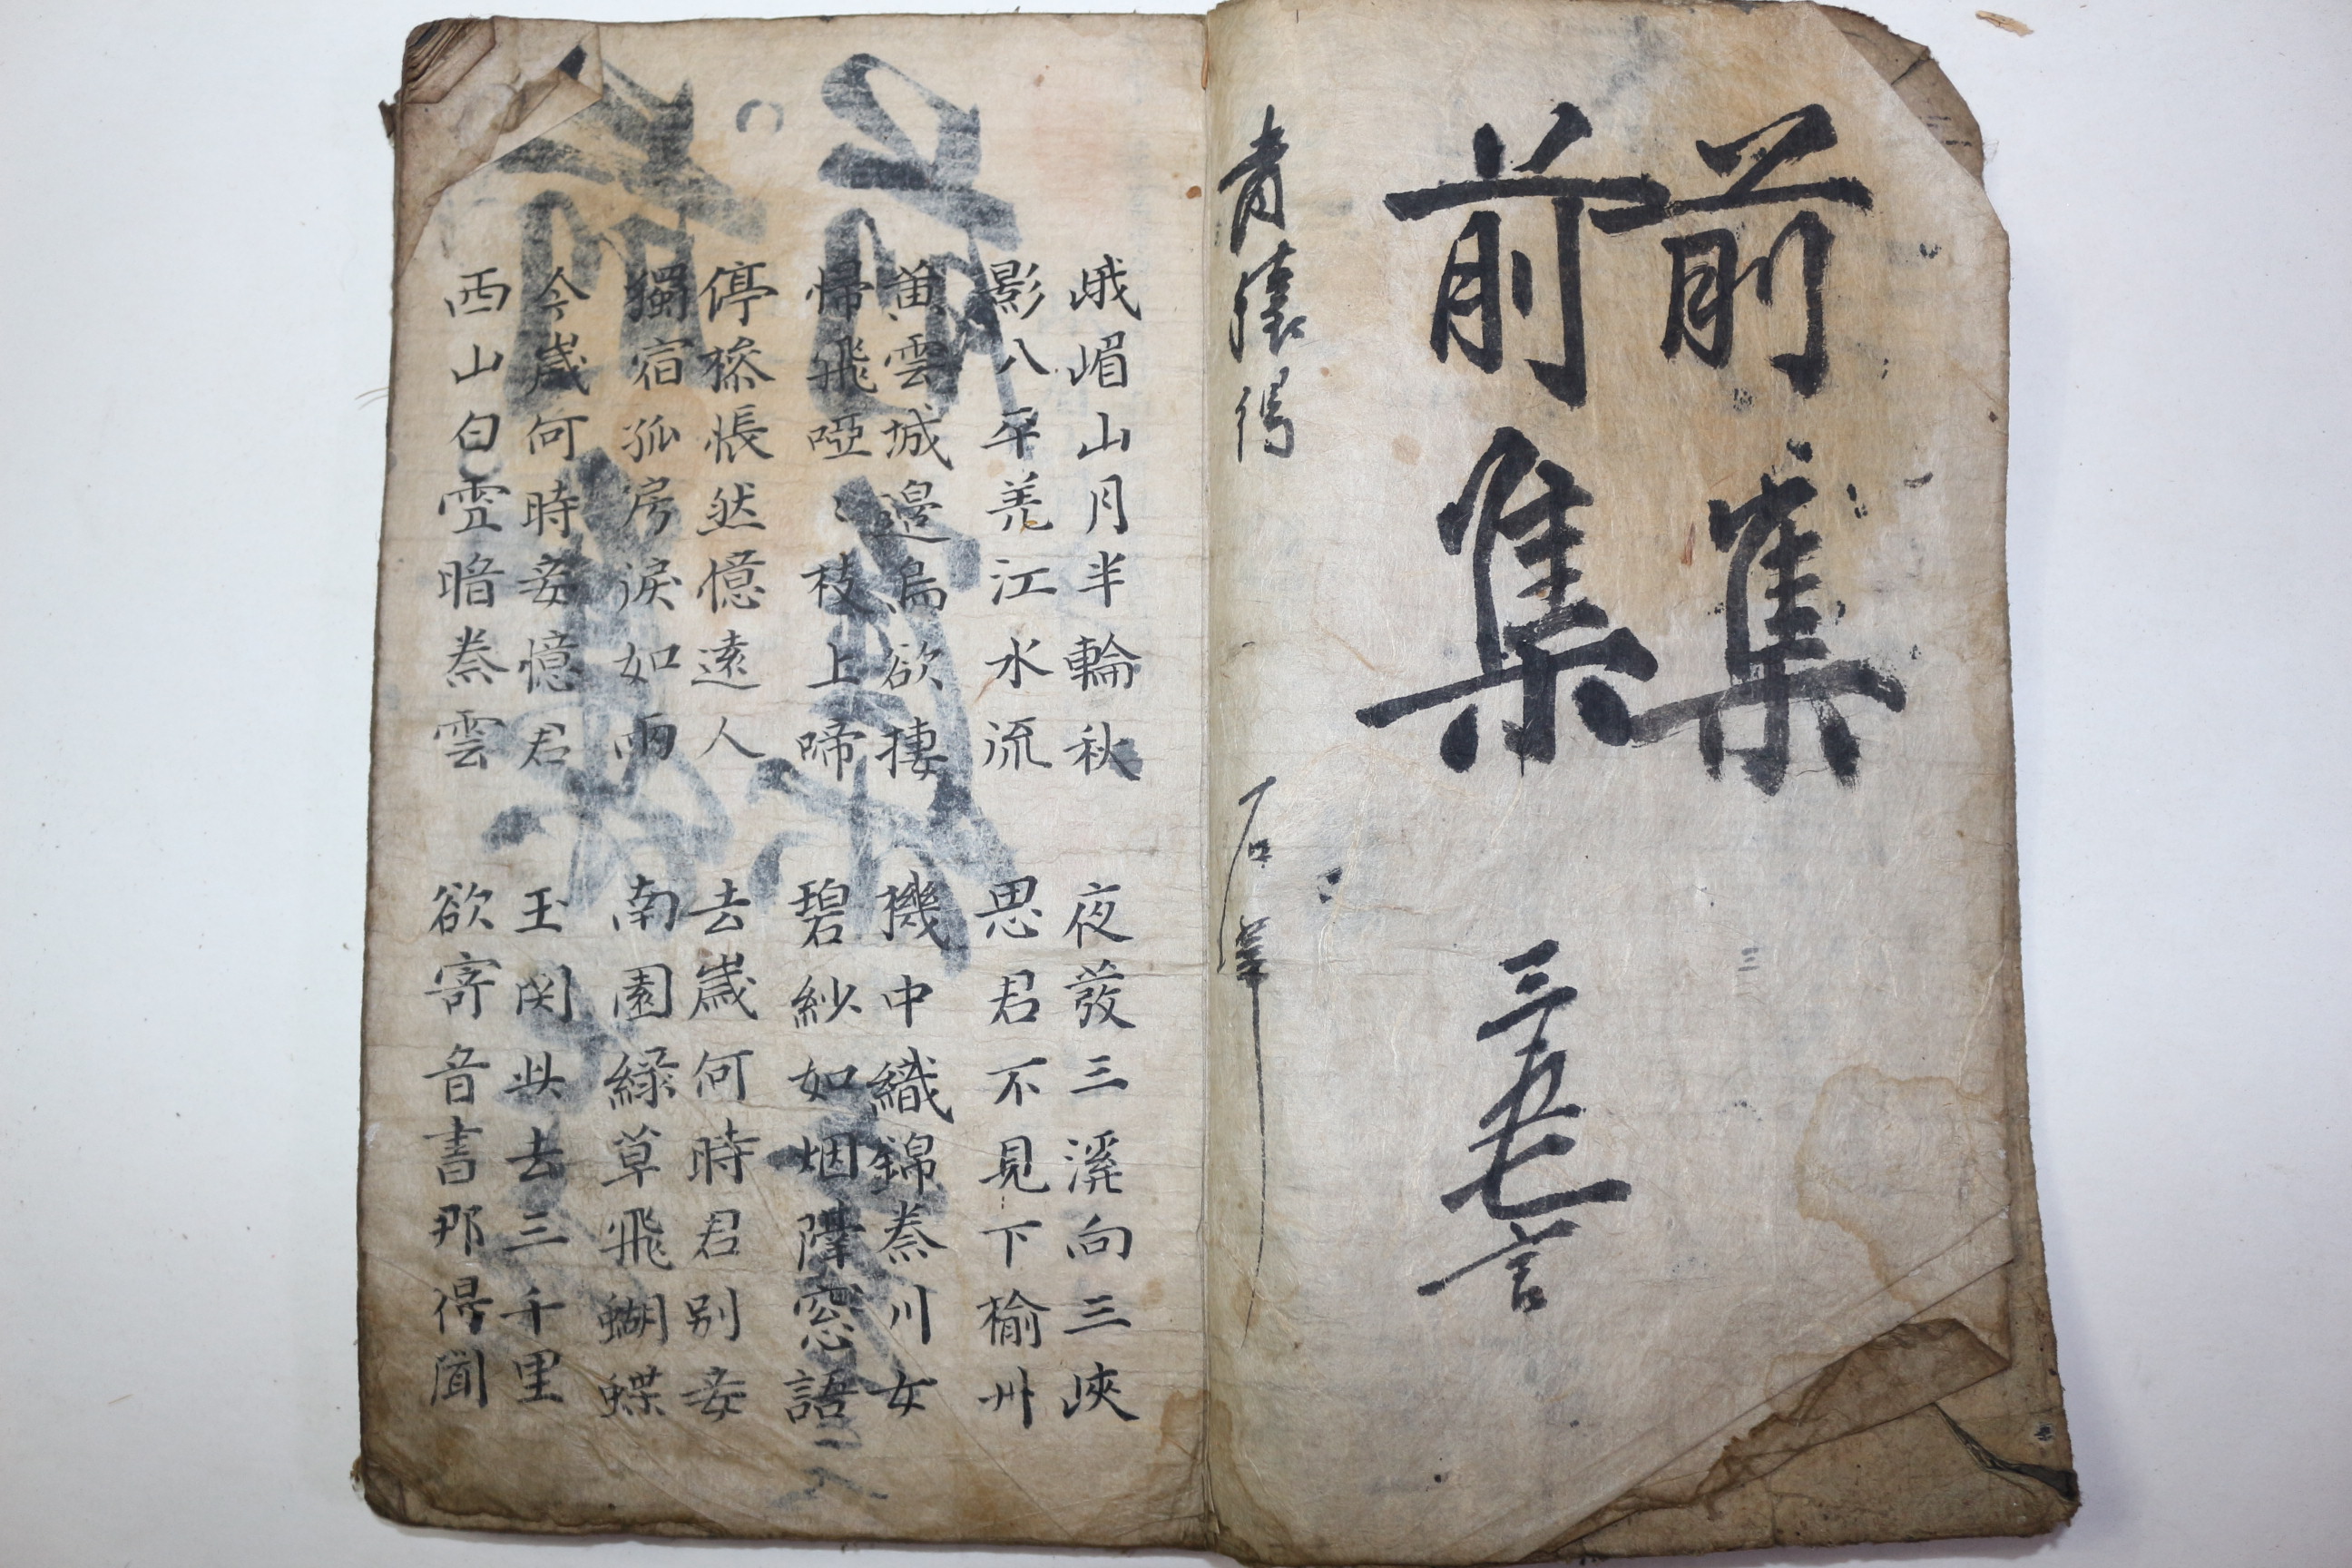 前集
前集 三五七言
石
峨嵋山月半輪秋 夜發三溪向三峽
影入平羌江水流 思君不見下楡州
黃雲城邊烏欲捿 機中織錦秦川女
歸飛啞〻枝上啼 碧紗如烟隔窓語
停梭悵然憶遠人 去歲何時君別妾
獨宿孤房淚如雨 南園綠草飛蝴蝶
今歲何時妾憶君 玉関此去三千里
西山白雪暗秦雲 欲寄音書那得聞